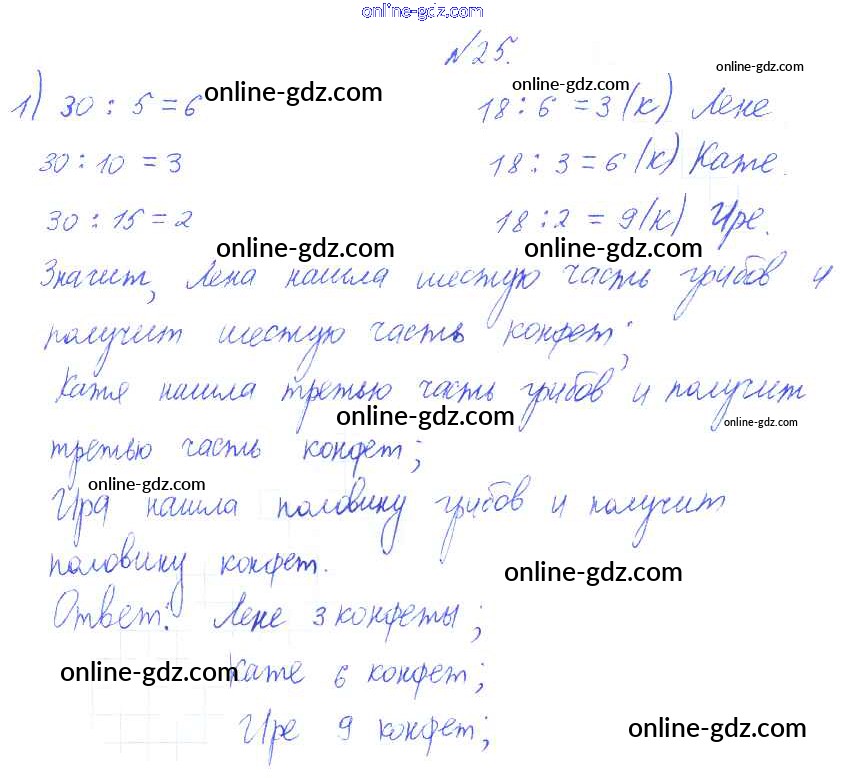 online-gdz.com
№25.
online-gdz.com
1) 30 : 5 = 6 online-gdz.com 18 : 6 = 3 (к) Лене
online-gdz.com
30 : 10 = 3 18 : 3 = 6 (к) Кате.
30 : 15 = 2 18 : 2 = 9 (к) Ире.
online-gdz.com online-gdz.com
Значит, Лена нашла шестую часть грибов и
получит шестую часть конфет;
Катя нашла третью часть грибов и получит
online-gdz.com online-gdz.com
третью часть конфет;
online-gdz.com
Ира нашла половину грибов и получит
половину конфет.
online-gdz.com
Ответ: Лене 3 конфеты;
online-gdz.com Кате 6 конфет;
Ире 9 конфет;
online-gdz.com